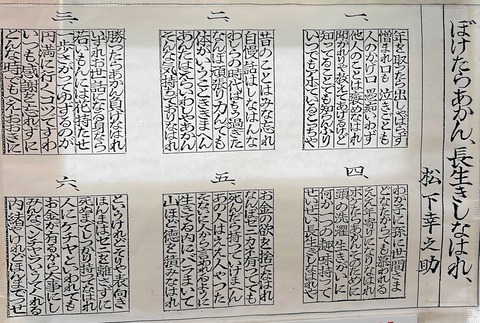 ぼけたらあかん、長生きしなはれ、
松下幸之助
一、
年を取ったら出しゃばらず
憎まれ口も泣きごとも
人のかげ口愚痴いわず
他人のことは褒めなはれ
聞かれりゃ教えてあげるけど
知ってることでも知らんふり
いつでもアホでいるこっちゃ
二、
昔のことはみな忘れ
自慢話はしなはんな
わしらの時代はもう過ぎた
なんぼ頑張り力んでも
体がいうことききまへん
あんたはえらいわしゃあかん
そんな気持ちでおりなはれ
三、
勝ったらあかん負けなはれ
お世話になる身なら
若いもんには花持たせ
一歩さがってゆずるのが
円満に行くコツですわ
いつも感謝を忘れずに
どんな時でもへえおおきに
四、
わが子に孫に世間さま
どなたからでも慕われる
ええ年寄りになりなはれ
ボケたらあかんそのために
頭の洗濯生きがいに
何か一つの趣味持って
せいぜい長生きしなはれや
五、
お金の欲を捨てなはれ
なんぼゼニカネ有っても
死んだら持って行けまへん
あの人はええ人やった
人から言われるように
生きてる内にバラまいて
山ほど徳を積みなはれ
六、
というけれどそりゃ表向き
ほんまはゼニを離さずに
死ぬまでしっかり持ってなはれ
人にケチやといわれても
お金が有るから大事にし
みんなベンチャラいうてくれる
内緒やけれどほんまでっせ